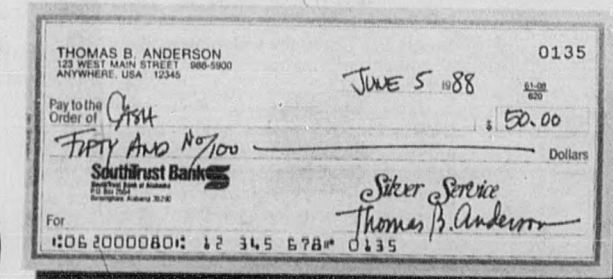 THOMAS B. ANDERSON 0135
123 WEST MAIN STREET 988-5900
ANYWHERE, USA 12345
JUNE 5 1988
61-08
620
Pay to the
Order of CASH $ 50.00
FIFTY AND No/100 Dollars
SouthTrust Bank
SouthTrust Bank of Alabama
P.O. Box 2554
Birmingham, Alabama 35290
Silver Service
For Thomas B. Anderson
⑆062000080⑆ 12 345 678⑈ 0135